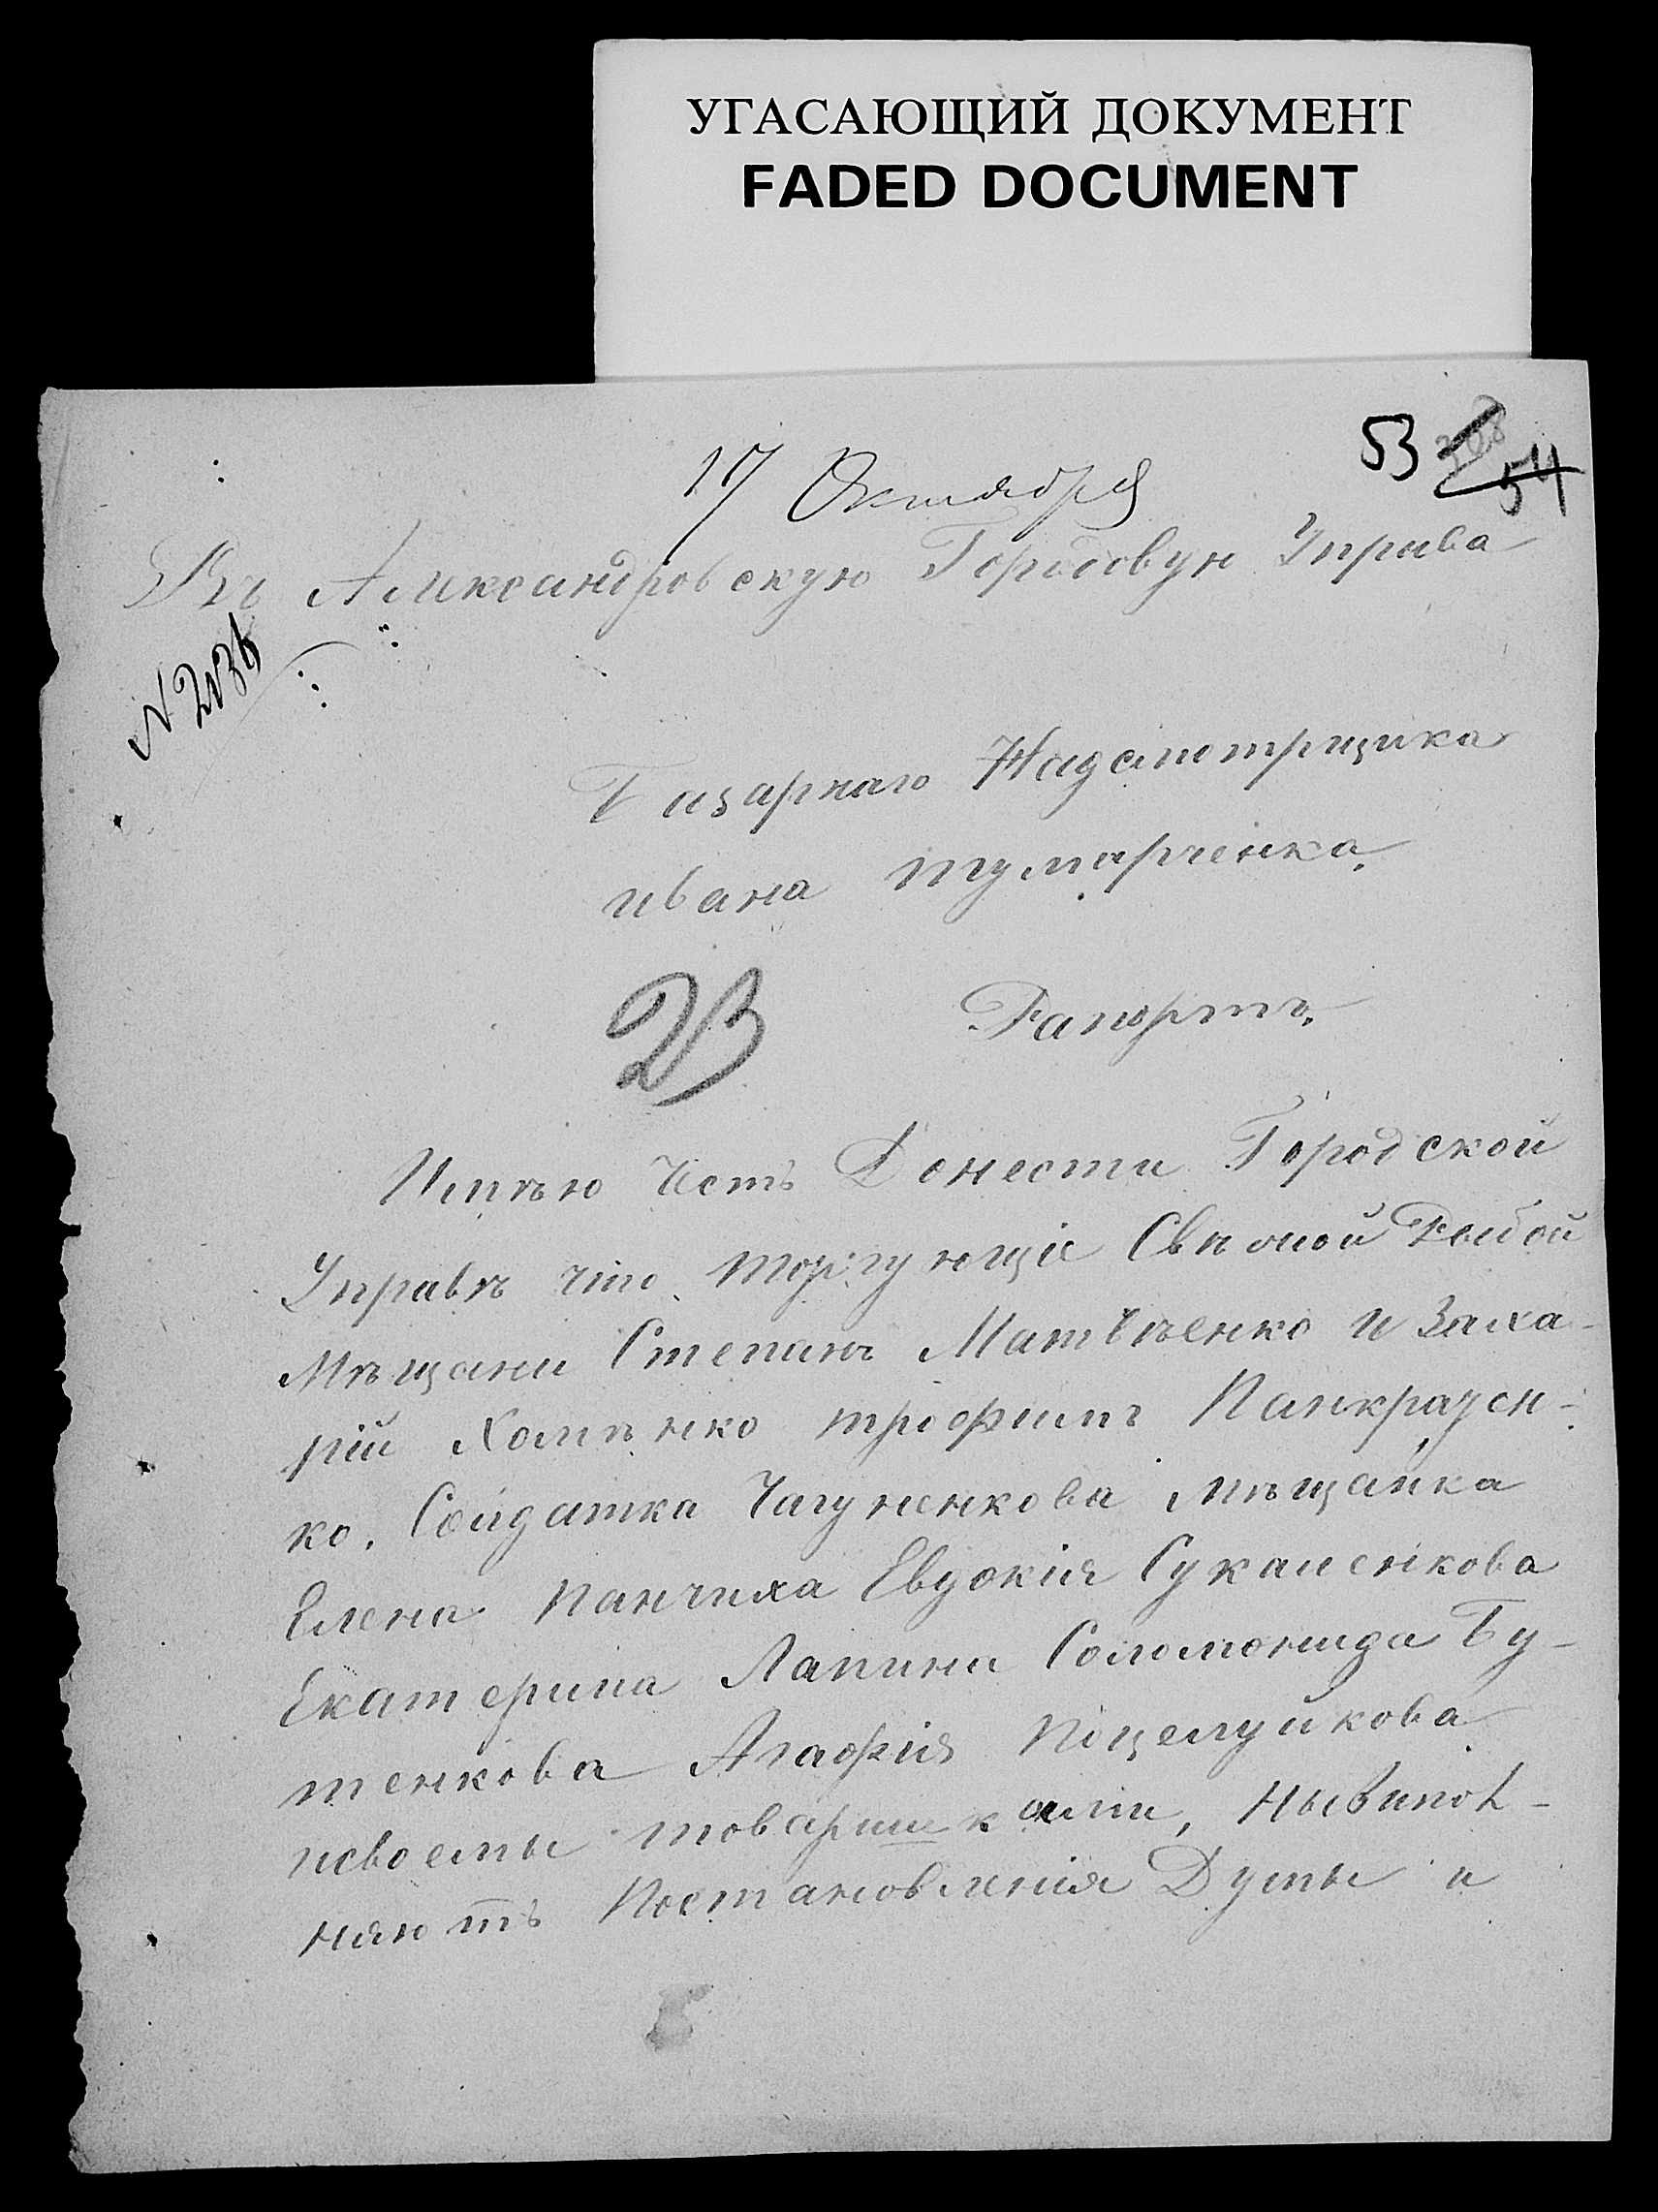 УГАСАЮЩИЙ ДОКУМЕНТ
FADED DOCUMENT
53 54
17 Октября
Въ Александровскую Городовую Управа
N 2036
Базарнаго Надсмотрщика
ивана тумарченка.
Рапортъ.
Имѣю Честь Донести Городской
Управѣ что торгующіе Свѣжой Рыбой
Мѣщани Степанъ Матвѣенко и Заха-
рій Хомѣнко трофимъ Панкрацен-
ко. Солдатка Чагуненкова мѣщанка
Елена Панчиха Евдокія Сукаленкова
Екатерина Лапина Соломонида Бу-
тенкова Агафія Поцелуйкова
исвоемы товаришками, нывипол-
няютъ Постановленія Думы и